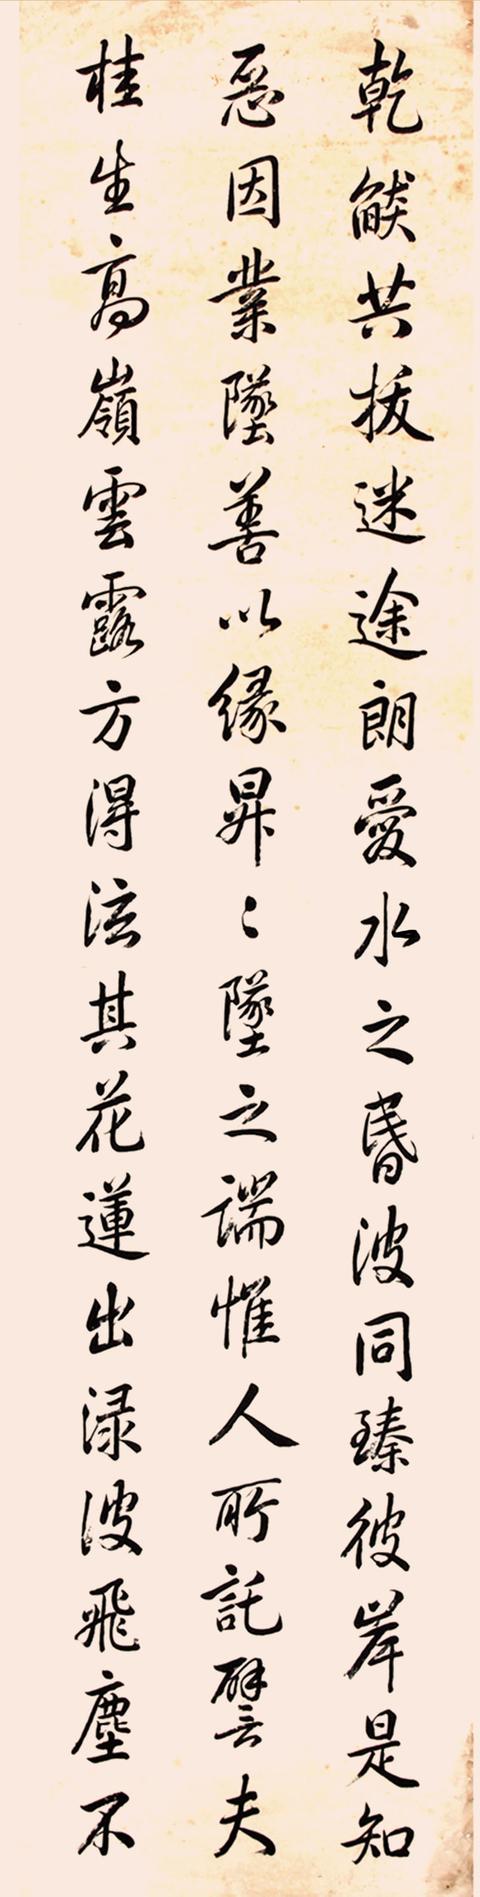 乾燄共拔迷途朗愛水之昏波同臻彼岸是知
惡因業墜善以緣昇〻墜之端惟人所託譬夫
桂生高嶺雲露方得泫其花蓮出淥波飛塵不